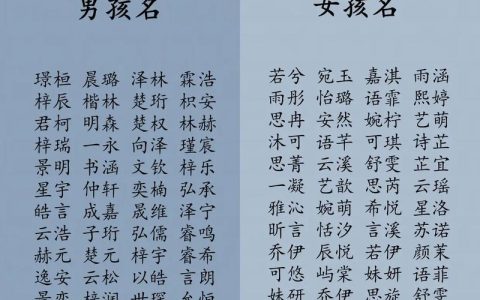 男孩名
璟桓 晨璐 泽林 霖浩
梓辰 楷林 楚珩 枳安
君柯 明森 楚权 林赫
梓瑞 一永 向泽 瑾宸
景明 书涵 文钦 梓乐
星宇 仲轩 奕楠 弘承
皓言 成嘉 晟维 泽宁
云浩 子珩 弘儒 睿鸣
赫元 楚元 梓宇 睿希
逸安 云松 以皓 言朗
女孩名
若兮 宛玉 嘉淇 雨涵
雨彤 怡璐 语霏 熙婷
思冉 安然 婉柠 艺萌
沐可 语芊 可琪 诗芷
思菁 云溪 舒雯 芷宜
一凝 艺歆 思芮 云瑶
雅沁 婉萌 希悦 星洛
昕言 恬汐 言溪 苏诺
乔伊 辰悦 若伊 颜茉
可悠 屿棠 姝妍 语菲